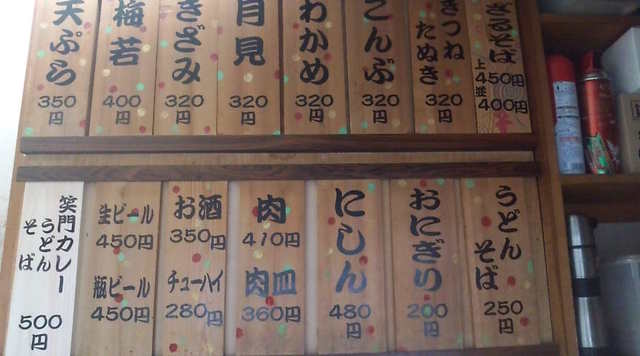 ざるそば
上 450円
並 400円
きつね
たぬき
320円
こんぶ
320円
わかめ
320円
月見
320円
きざみ
320円
梅若
400円
天ぷら
350円
うどん
そば
250円
おにぎり
200円
にしん
480円
肉
410円
肉皿
360円
お酒
350円
チューハイ
280円
生ビール
450円
瓶ビール
450円
笑門カレー
うどん
そば
500円